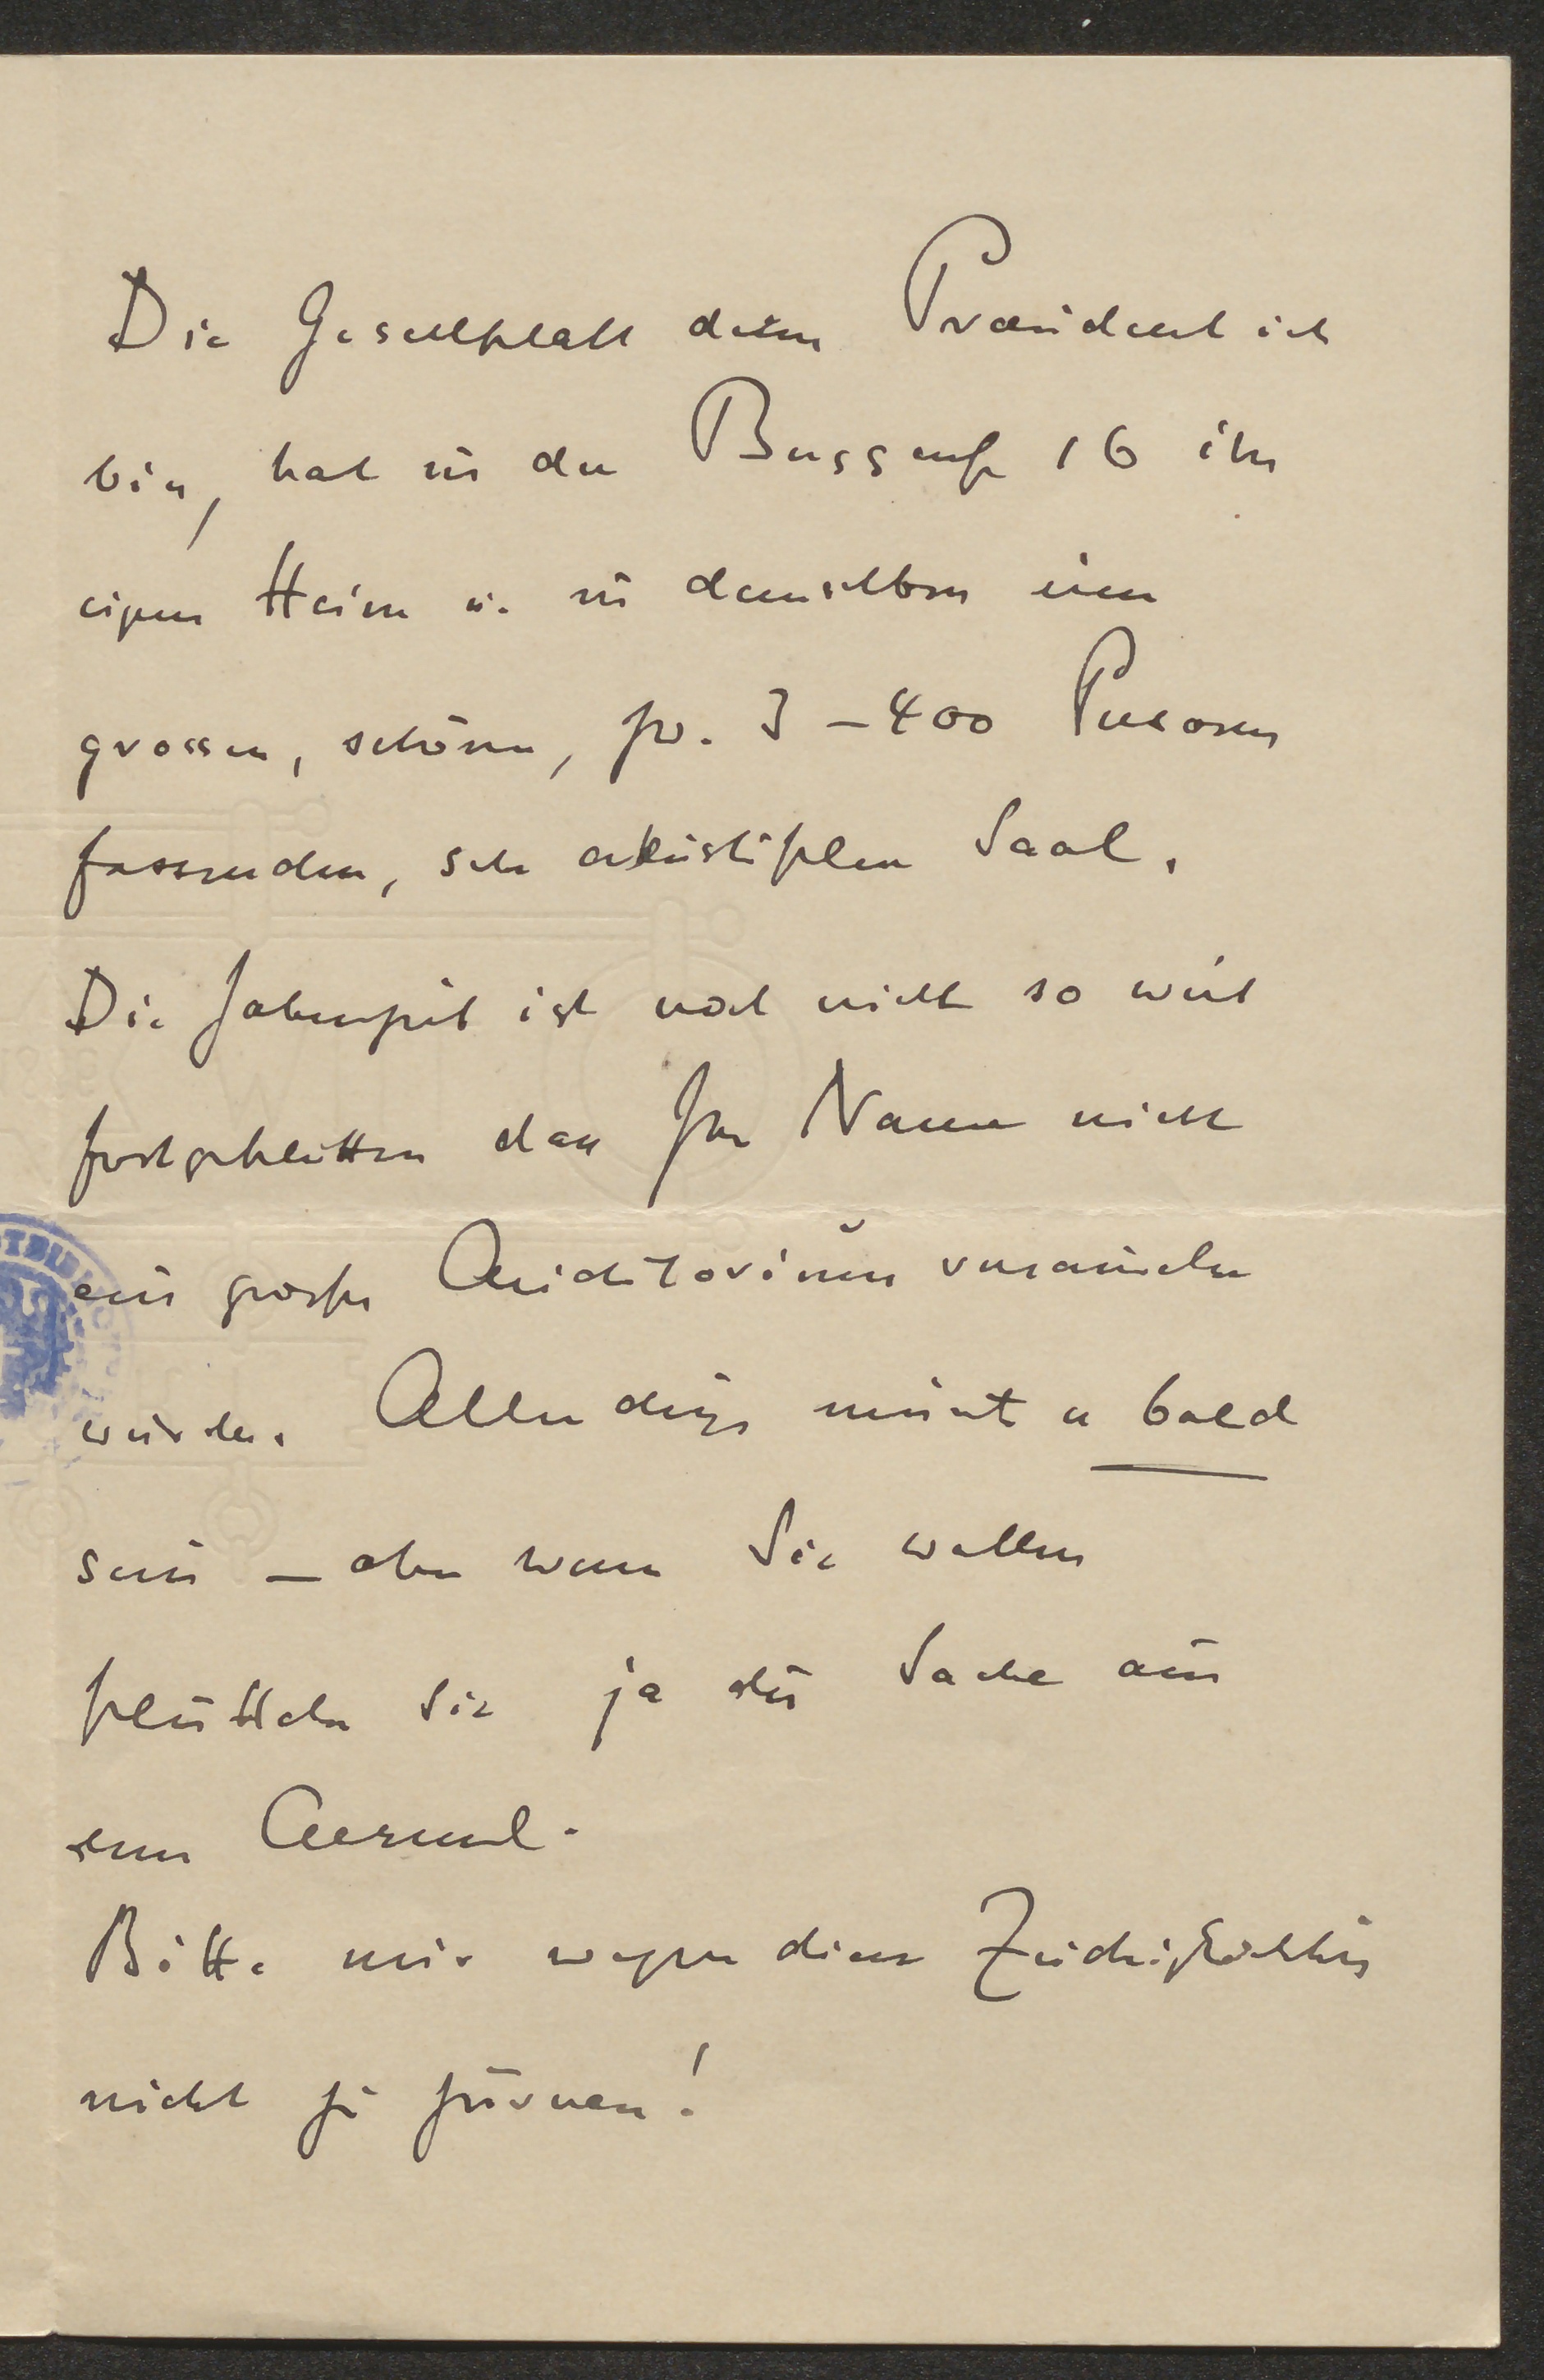 Die Gesellschaft deren Praesident ich
bin, hat in der Burggasse 16 ihr
eigen Heim u. in demselben einen
grossen, schönen, ca. 3–400 Personen
fassenden, sehr akustischen Saal.
Die Jahreszeit ist noch nicht so weit
fortgeschritten dass Ihr Name nicht
ein grosses Auditorium versammeln
würde. Allerdings müsst es bald
sein – aber wenn Sie wollen
schütteln Sie ja die Sache aus
dem Aermel.
Bitte mir wegen dieser Zudringlichkeit
nicht zu zürnen!